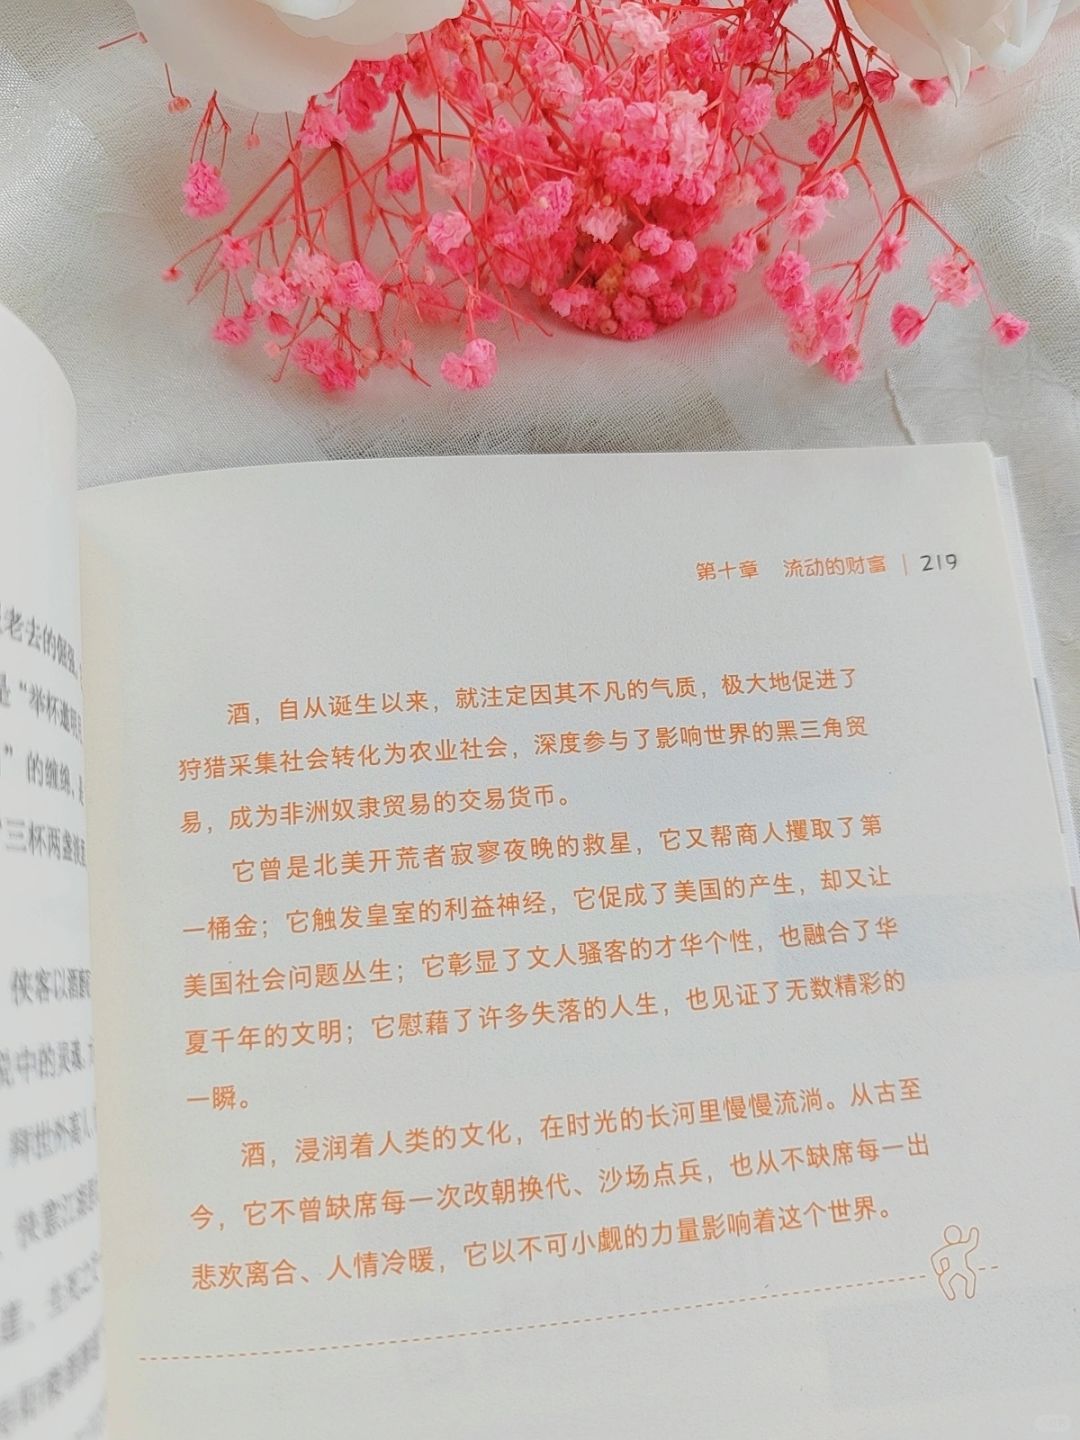 老去的倔强
是“举杯邀明月
”的缠绵、
三杯两盏淡
侠客以酒
中的灵魂
第十章 流动的财富 | 219
酒，自从诞生以来，就注定因其不凡的气质，极大地促进了
狩猎采集社会转化为农业社会，深度参与了影响世界的黑三角贸
易，成为非洲奴隶贸易的交易货币。
它曾是北美开荒者寂寥夜晚的救星，它又帮商人攫取了第
一桶金；它触发皇室的利益神经，它促成了美国的产生，却又让
美国社会问题丛生；它彰显了文人骚客的才华个性，也融合了华
夏千年的文明；它慰藉了许多失落的人生，也见证了无数精彩的
一瞬。
酒，浸润着人类的文化，在时光的长河里慢慢流淌。从古至
今，它不曾缺席每一次改朝换代、沙场点兵，也从不缺席每一出
悲欢离合、人情冷暖，它以不可小觑的力量影响着这个世界。